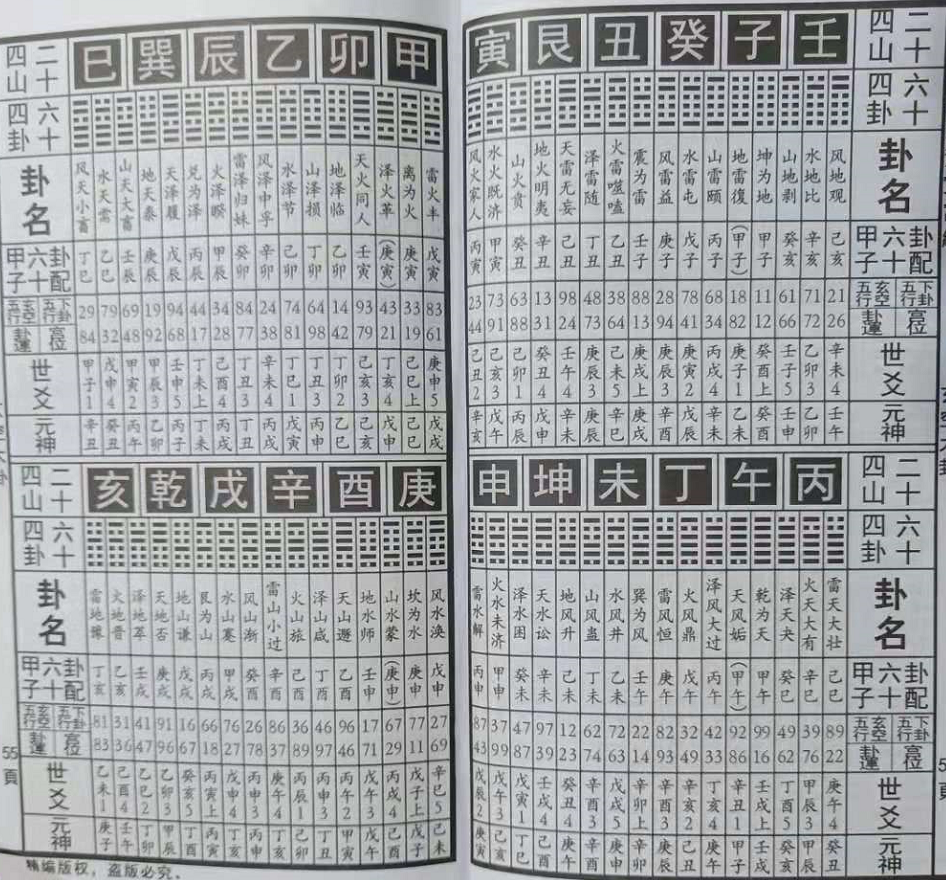 二十四山 巳 巽 辰 乙 卯 甲
六十四卦
卦名 风天小畜 水天需 山天大畜 地天泰 天泽履 兑为泽 火泽睽 雷泽归妹 风泽中孚 水泽节 山泽损 地泽临 天火同人 泽火革 离为火 雷火丰
卦配六十甲子 丁巳 乙巳 壬辰 庚辰 戊辰 丙辰 甲辰 癸卯 辛卯 己卯 丁卯 乙卯 壬寅 (庚寅) 庚寅 戊寅
下卦五行 玄空五行 29 79 69 19 94 44 34 84 24 74 64 14 93 43 33 83
宫位 卦運 84 32 48 92 68 17 28 77 38 81 98 42 79 21 19 61
世爻 甲子1 戊申4 甲寅2 甲辰3 壬申5 丁未上 己酉4 丁丑3 辛未4 丁巳1 丁丑3 丁卯2 己亥3 丁亥4 己巳上 庚申5
元神 辛丑 癸丑 丙午 乙卯 丙子 丁未 丙戌 丁丑 丙戌 戊寅 丙申 乙巳 己亥 戊申 己巳 戊戌
二十四山 亥 乾 戌 辛 酉 庚
六十四卦
卦名 雷地豫 火地晋 泽地萃 天地否 地山谦 艮为山 水山蹇 风山渐 雷山小过 火山旅 泽山咸 天山遯 地水师 山水蒙 坎为水 风水涣
卦配六十甲子 丁亥 乙亥 壬戌 庚戌 戊戌 丙戌 甲戌 癸酉 辛酉 己酉 丁酉 乙酉 壬申 (庚申) 庚申 戊申
下卦五行 玄空五行 81 31 41 91 16 66 76 26 86 36 46 96 17 67 77 27
宫位 卦運 83 36 47 96 67 18 27 78 37 89 97 46 71 29 11 69
世爻 乙未1 己酉4 乙巳2 乙卯3 癸亥5 丙寅上 戊申4 丙申3 庚午4 丙辰1 丙申3 丙午2 戊午3 丙戌4 戊子上 辛巳5
元神 庚子 壬午 丁卯 甲寅 丁酉 丙寅 丁亥 丙申 丁亥 己卯 丁丑 甲寅 戊午 己酉 戊子 己未
精编版权，盗版必究。
55頁
二十四山 寅 艮 丑 癸 子 壬
六十四卦
卦名 风火家人 水火既济 山火贲 地火明夷 天雷无妄 泽雷随 火雷噬嗑 震为雷 风雷益 水雷屯 山雷颐 地雷復 坤为地 山地剥 水地比 风地观
卦配六十甲子 丙寅 甲寅 癸丑 辛丑 己丑 丁丑 乙丑 壬子 庚子 戊子 丙子 (甲子) 甲子 癸亥 辛亥 己亥
下卦五行 玄空五行 23 73 63 13 98 48 38 88 28 78 68 18 11 61 71 21
宫位 卦運 44 91 88 31 24 73 64 13 94 41 34 82 12 66 72 26
世爻 己丑2 己亥3 己卯1 癸丑4 壬午4 庚辰3 己未5 庚戌上 庚辰3 庚寅2 丙戌4 庚子1 癸酉上 壬子5 乙卯3 辛未4
元神 辛亥 戊午 丙辰 戊申 辛未 庚辰 辛巳 庚戌 辛酉 戊辰 辛未 乙未 癸酉 壬申 乙卯 壬午
二十四山 申 坤 未 丁 午 丙
六十四卦
卦名 雷水解 火水未济 泽水困 天水讼 地风升 山风蛊 水风井 巽为风 雷风恒 火风鼎 泽风大过 天风姤 乾为天 泽天夬 火天大有 雷天大壮
卦配六十甲子 丙申 甲申 癸未 辛未 己未 丁未 乙未 壬午 庚午 戊午 丙午 (甲午) 甲午 癸巳 辛巳 己巳
下卦五行 玄空五行 87 37 47 97 12 62 72 22 82 32 42 92 99 49 39 89
宫位 卦運 43 99 87 39 23 74 63 14 93 49 33 86 16 62 76 22
世爻 戊辰2 戊午3 戊寅1 壬午4 癸丑4 辛酉3 戊戌5 辛卯上 辛酉3 辛亥2 丁亥4 辛丑1 壬戌上 丁酉5 甲辰3 庚午4
元神 庚寅 己亥 丁巳 己酉 庚午 辛酉 庚申 辛卯 庚辰 己丑 庚午 甲子 壬戌 癸巳 甲辰 癸丑